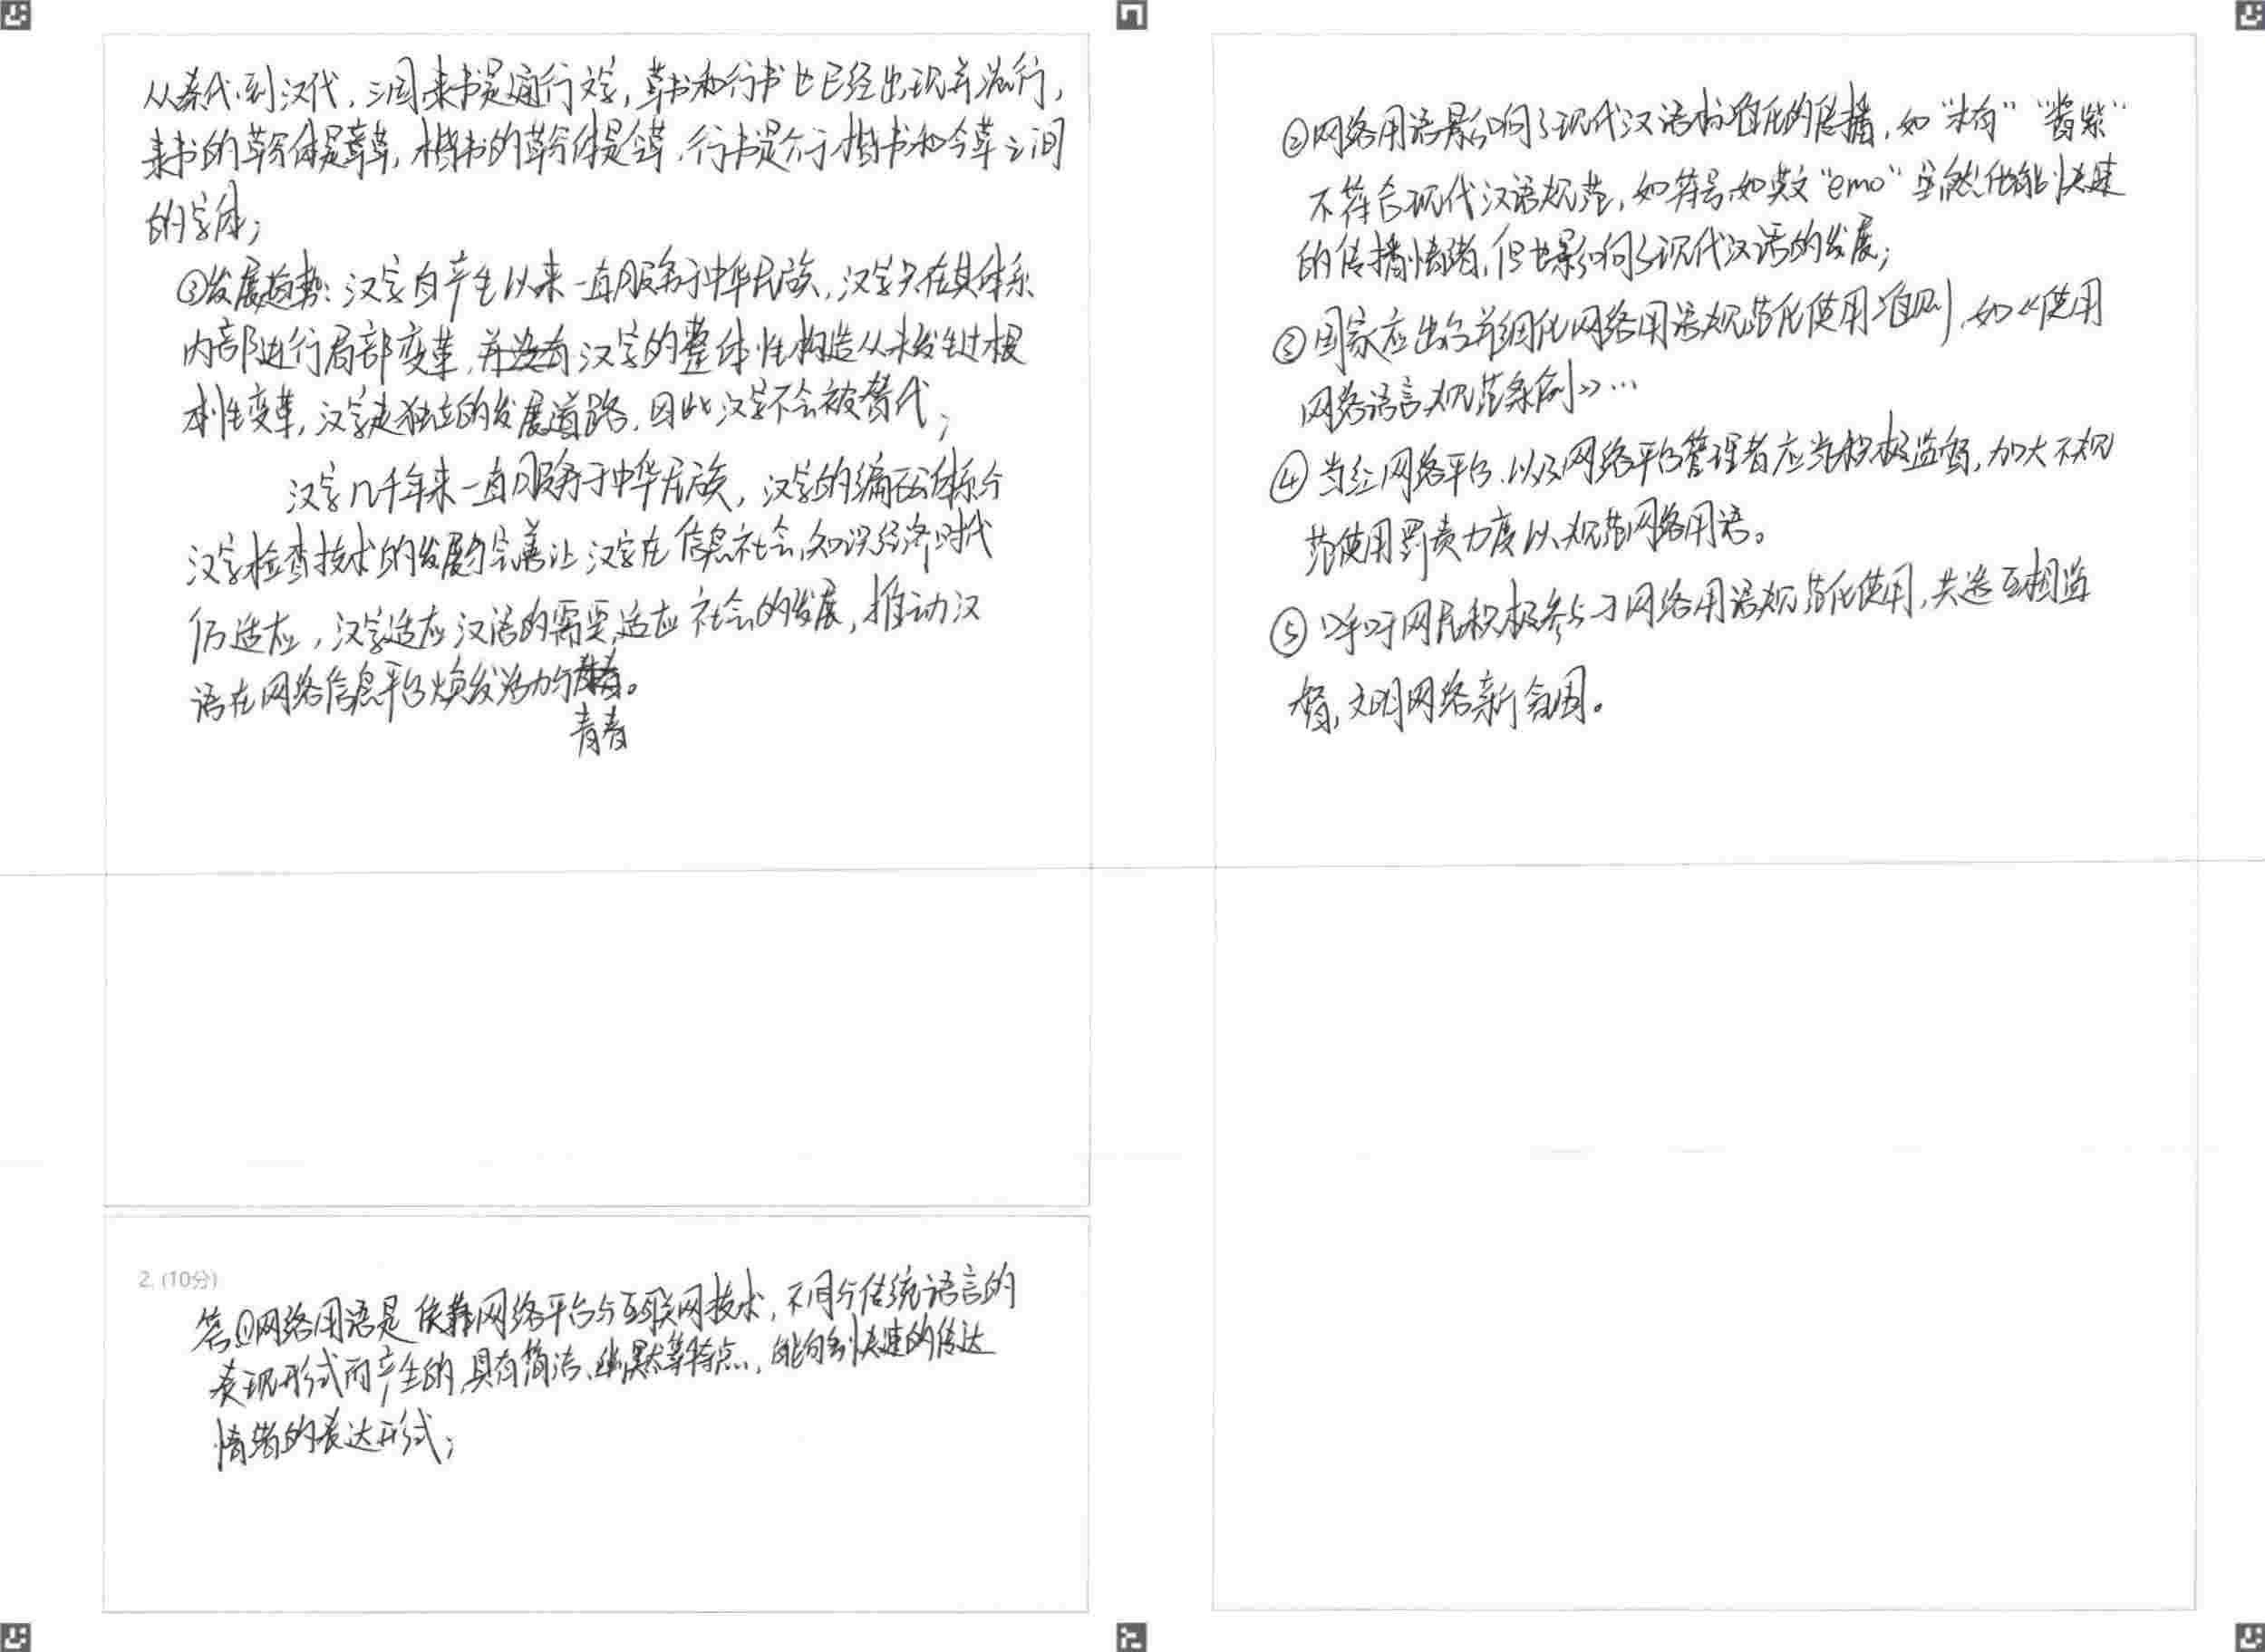 从秦代到汉代,三国隶书是通行文字,草书和行书也已经出现并流行,
隶书的草写体是章草,楷书的草写体是今草,行书是介于楷书和今草之间
的字体;
③发展趋势:汉字自产生以来一直服务于中华民族,汉字只在其体系
内部进行局部变革,汉字的整体性构造从未发生过根
本性变革,汉字走独立的发展道路,因此汉字不会被替代;
汉字几千年来一直服务于中华民族,汉字的编码体系与
汉字检查技术的发展与完善让汉字在信息社会、知识经济时代
仍适应,汉字适应汉语的需要,适应社会的发展,推动汉
语在网络信息平台焕发活力与青春。
2. (10分)
答①网络用语是依靠网络平台与互联网技术,不同与传统语言的
表现形式而产生的,具有简洁、幽默等特点,能够快速的传达
情绪的表达形式;
②网络用语影响了现代汉语标准化的传播,如“木有”“酱紫”
不符合现代汉语规范,如符号,如英文“emo”虽然他能快速
的传播情绪,但也影响了现代汉语的发展;
③国家应出台并细化网络用语规范化使用准则,如《使用
网络语言规范条例》…
④当红网络平台,以及网络平台管理者应当积极监督,加大不规
范使用罚责力度以规范网络用语。
⑤呼吁网民积极参与于网络用语规范化使用,共造互相监
督,文明网络新氛围。